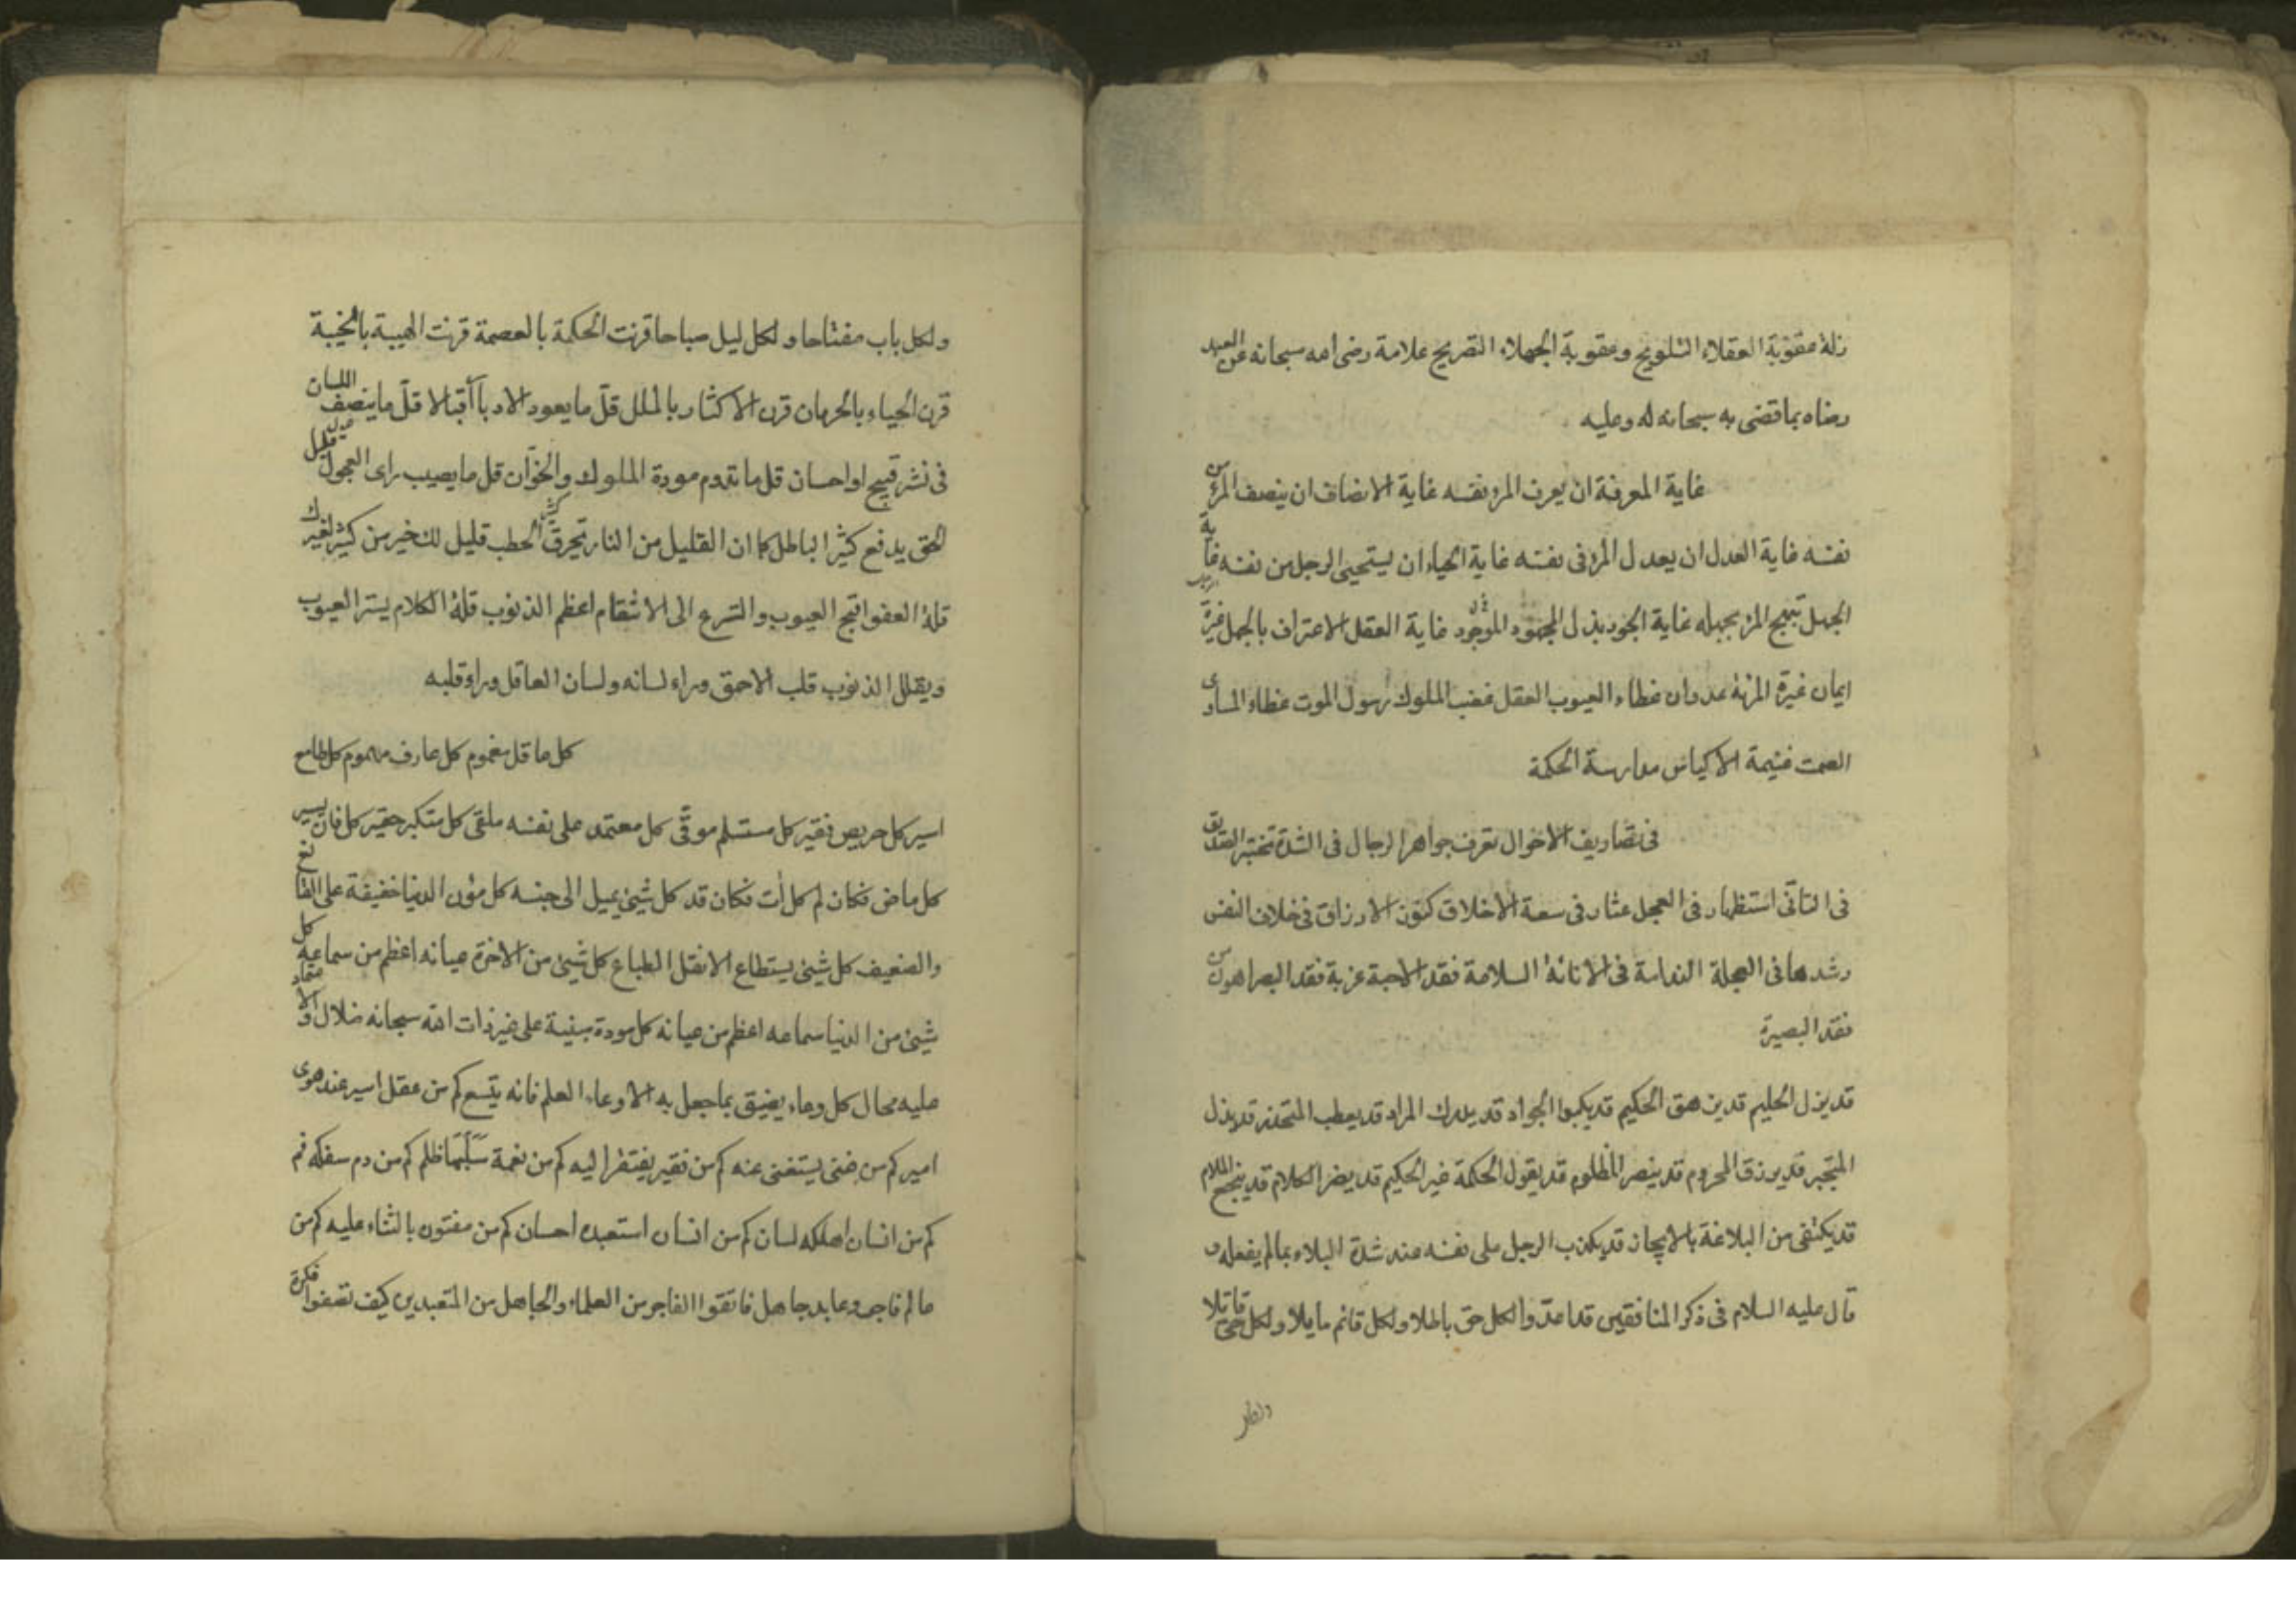 زلة عقوبة العقلاء التلويح وعقوبة الجهلاء التصريح علامة رضى الله سبحانه عن العبد
رضاه بما قضى به سبحانه له وعليه
غاية المعرفة ان يعرف المرء نفسه غاية الانصاف ان ينصف المرء من
نفسه غاية العدل ان يعدل المرء فى نفسه غاية الحياء ان يستحيى الرجل من نفسه غاية
الجهل تبجح المرء بجهله غاية الجود بذل المجهود الموجود غاية العقل الاعتراف بالجهل غيرة الرجل
ايمان غيرة المرءة عدوان غطاء العيوب العقل غضب الملوك رسول الموت غطاء المساوى
الصمت غنيمة الاكياس مدارسة الحكمة
فى تصاريف الاحوال تعرف جواهر الرجال فى الشدة تختبر الصديق
فى التانّى استظهار فى العجل عثار فى سعة الاخلاق كنوز الارزاق فى خلاف النفس
رشدها فى العجلة الندامة فى الاناءة السلامة فقد الاحبة غربة فقد البصر اهون من
فقد البصيرة
قد يزل الحليم قد يزهق الحكيم قد يكبوا الجواد قد يدرك المراد قد يعطب المتحذر قد يذل
المتجبر قد يرزق المحروم قد ينصر المظلوم قد يقول الحكمة غير الحكيم قد يضر الكلام قد ينجع الملام
قد يكتفى من البلاغة بالايجاز قد يكذب الرجل على نفسه عند شدة البلاء بما لم يفعله و
قال عليه السلام فى ذكر المنافقين قد اعدّوا لكل حق باطلا ولكل قائم مايلا ولكل حىّ قاتلا
ولكل
ولكل باب مفتاحا ولكل ليل صباحا قرنت الحكمة بالعصمة قرنت الهيبة بالخيبة
قرن الحياء بالحرمان قرن الاكثار بالملل قلّ ما يعود الادبار اقبالا قلّ ما ينصف اللسان
فى نشر قبيح او احسان قل ما تدوم مودة الملوك والخوّان قل ما يصيب راى العجول قليل من
الحق يدفع كثير الباطل كما ان القليل من النار تحرق كثير الحطب قليل لك خير من كثير لغيرك
قلة العفو اقبح العيوب والتسرع الى الانتقام اعظم الذنوب قلة الكلام يستر العيوب
ويقلل الذنوب قلب الاحمق وراء لسانه ولسان العاقل وراء قلبه
كل عاقل مغموم كل عارف مهموم كل طامع
اسير كل حريص فقير كل مستسلم موقّى كل معتمد على نفسه ملقى كل متكبر حقير كل فان يسير
كل ماض فكان لم كل آت فكان قد كل شيئ يميل الى جنسه كل مؤن الدنيا خفيفة على القانع
والضعيف كل شيئ يستطاع الا نقل الطباع كل شيئ من الاخرة عيانه اعظم من سماعه كل
شيئ من الدنيا سماعه اعظم من عيانه كل مودة مبنية على غير ذات الله سبحانه ضلال والاعتماد
عليه محال كل وعاء يضيق بما جعل به الا وعاء العلم فانه يتسع كم من عقل اسير عند هوى
امير كم من غنى يستغنى عنه كم من فقير يفتقر اليه كم من نعمة سَلَبَهَا ظلم كم من دم سفكه فم
كم من انسان اهلكه لسان كم من انسان استعبده احسان كم من مفتون بالثناء عليه كم من
عالم فاجر وعابد جاهل فاتقوا الفاجر من العلماء والجاهل من المتعبدين كيف تصفوا فكرة